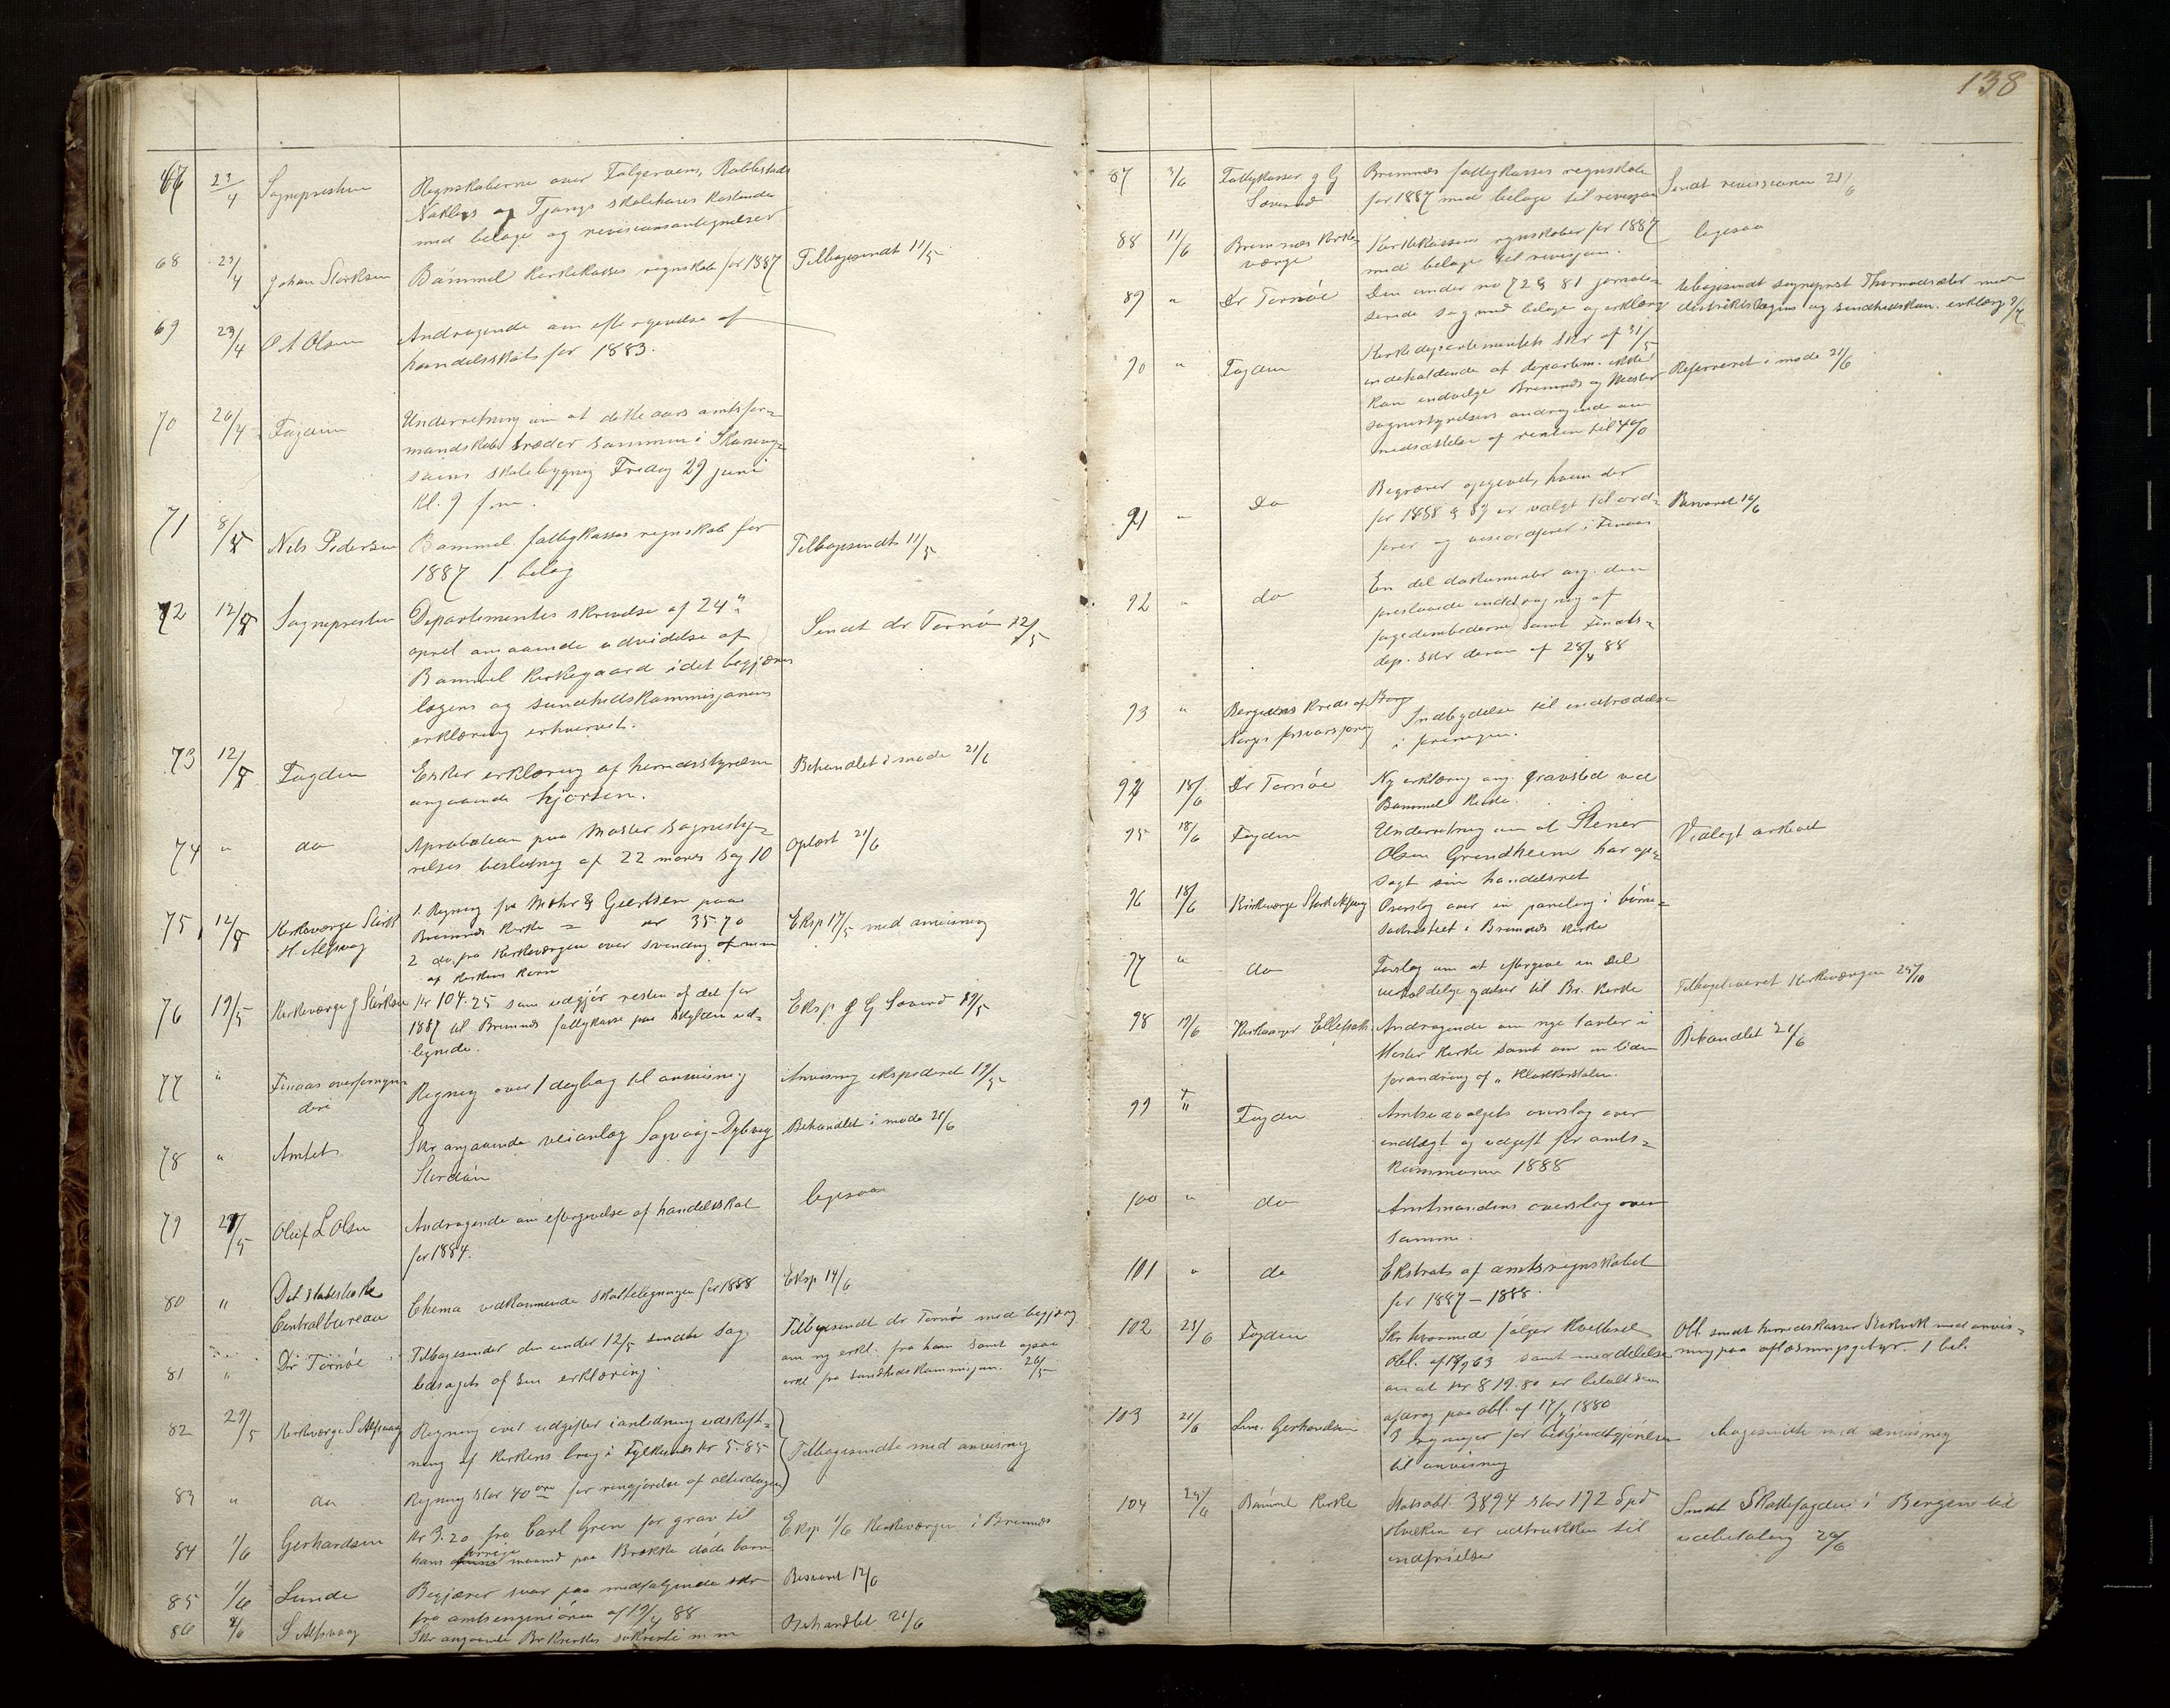 138
67 23/4 Sognepresten Regnskaberne over Følgerøens, Rabbestads
Naklings og Tjongs skolehuses kostende
med belage og revisionsantegnelser
68 23/4 Johan Størksen Bømmel kirkekasses regnskab for 1887 Tilbagesendt 11/5
69 23/4 O A Olsen Andragende om eftergivelse af
handelsskat for 1883.
70 26/4 Fogden Underretning om at dette aars amtsfor-
mandskab træder sammen i
skolebygning Fredag 29 juni
kl. 9 f.m.
71 8/5 Nils Pedersen Bømmel fattigkasses regnskab for Tilbagesendt 11/5
1887 1 belag
72 12/5 Sognepresten Departementets skrivelse af 24de Sendt dr Tornøe 12/5
april angaaende udvidelse af
Bømmel Kirkegaard idet begjæres
lægens og sundhedskommisjonens
erklæring erhvervet.
73 12/5 Fogden Ønsker erklæring af herredsstyrerne Behandlet i møde 21/6
angaaende hjorten.
74 " do Aprobation paa Moster sognesty- Oplæst 21/6
relses beslutning af 22 marts sag 10
75 12/5 Kirkeværge Størk 1. Regning fra Mohr & Giertsen paa
H. Alfsvaag Bremnes Kirke = kr 35.70 Eksp 17/5 med anvisning
2 do fra Kirkeværgen over
af kirkens korn
76 19/5 Kirkeværge J Størksen kr 104.25 som udgjør resten af det for Eksp J G Søverud 19/5
1887 til Bremnes fattigkasse paa udli-
lignede.
77 " Finaas overformyn- Regning over 1 dagbog til anvisning Anvisning ekspederet 19/5
deri
78 " Amtet Skr angaaende veianlæg Sagvaag-Dybvig Behandlet i møde 21/6
Stordøen
79 29/5 Oluf L Olsen Andragende om eftergivelse af handelsskat ligesaa
for 1884.
80 " Det statistiske Skema vedkommende skatteligningen for 1888 Eksp 14/6
Centralbureau
81 " Dr Tornøe Tilbagesender den under 12/5 sendte sag Tilbagesendt dr Tornøe med begjæring
ledsaget af sin erklæring. om ny erkl. fra ham samt ogsaa
erkl fra sundhedskommisjon. 26/5
82 29/5 Kirkeværge S Alfsvaag Regning over udgifter i anledning udskift-
ning af kirkens brug i Fylkesnes kr 5.85 Tilbagesendte med anvisning
83 " do Regning stor 40 øre for rengjørelse af alterdugen
84 1/6 Gerhardsen Kr 3.20 fra Carl Gren for grav til Eksp 1/6 Kirkeværgen i Bremnes
hans forrige maaned paa Brække døde barn
85 1/6 Lunde Begjærer svar paa medfølgende skr Besvaret 12/6
fra amtsingeniøren af 19/4 88
86 2/6 S Alfsvaag Skr angaaende Br kirkes sakristi m m Behandlet 21/6
87 3/6 Fattigkasser J G Bremnes fattigkasses regnskab Sendt revissionen 21/6
Søverud for 1887 med belage til revisjon
88 11/6 Bremnes Kirke- Kirkekassens regnskaber for 1887 ligesaa
værge med belage til revisjon.
89 " Dr Tornøe Den under no 72 & 81 journali- tilbagesendt sogneprest Thormodsæter med
serede sag med belage og erklæring distriktslægens og sundhedskom. erklæring
90 " Fogden Kirkedepartementets skr af 31/5
indeholdende at departem. ikke Refereret i møde 21/6
kan indvilge Bremnes og Moster
sognestyrelsens andragende om
nedsættelse af renten til 4 %
91 " Do Begjærer opgivet, hvem der
for 1888 & 89 er valgt til ord- Besvaret 14/6
fører og viseordfører i Finaas
92 " do En del dokumenter ang. den
foreslaaede inddragning af
fogedembederne samt Finants-
dep. skr derom af 28/4 88
93 " Bergens kreds af Indbydelse til indtrædelse
Norges forsvarsforening i foreningen.
94 18/6 Dr Tornøe Ny erklæring ang. gravsted ved
Bømmel Kirke.
95 18/6 Fogden Underretning om at Steiner Vedlagt arkivet
Olsen Grindheim har op-
sagt sin handelsret
96 18/6 Kirkeværge Størk Alfsvaag Overslag over en paneling i børne-
sakristiet i Bremnes kirke
97 " do Forslag om at eftergive en del Tilbageleveret Kirkeværgen 29/10
uerholdelige ydelser til Br. kirke
98 19/6 Kirkeværger Andragende om nye tavler i Behandlet 21/6
Moster kirke samt om en liden
forandring af "Klokkerstolen.
99 " Fogden Amtsudvalgets overslag over
indtægt og udgift for amts-
kommunen 1888
100 " do Amtmandens overslag over
samme.
101 " do Ekstrakt af amtsregnskabet
for 1887 - 1888.
102 23/6 Fogden Skr hvormed følger kvitteret Obl. sendt herredskasser med anvis-
obl. af 63 samt meddelelse ning paa aflæsningsgebyr. 1 bel.
om at kr 819.80 er betalt som
afdrag paa obl. af 1880
103 21/6 Len. Gerhardsen 3 regninger for bekjendtgjørelser tilbagesendte med anvisning
til anvisning
104 Bømmel Kirke Statsobl. 3894 stor 192 Spd Sendt Skattefogden i Bergen til
hvilken er udtrukken til udbetaling 26/6
indfrielse